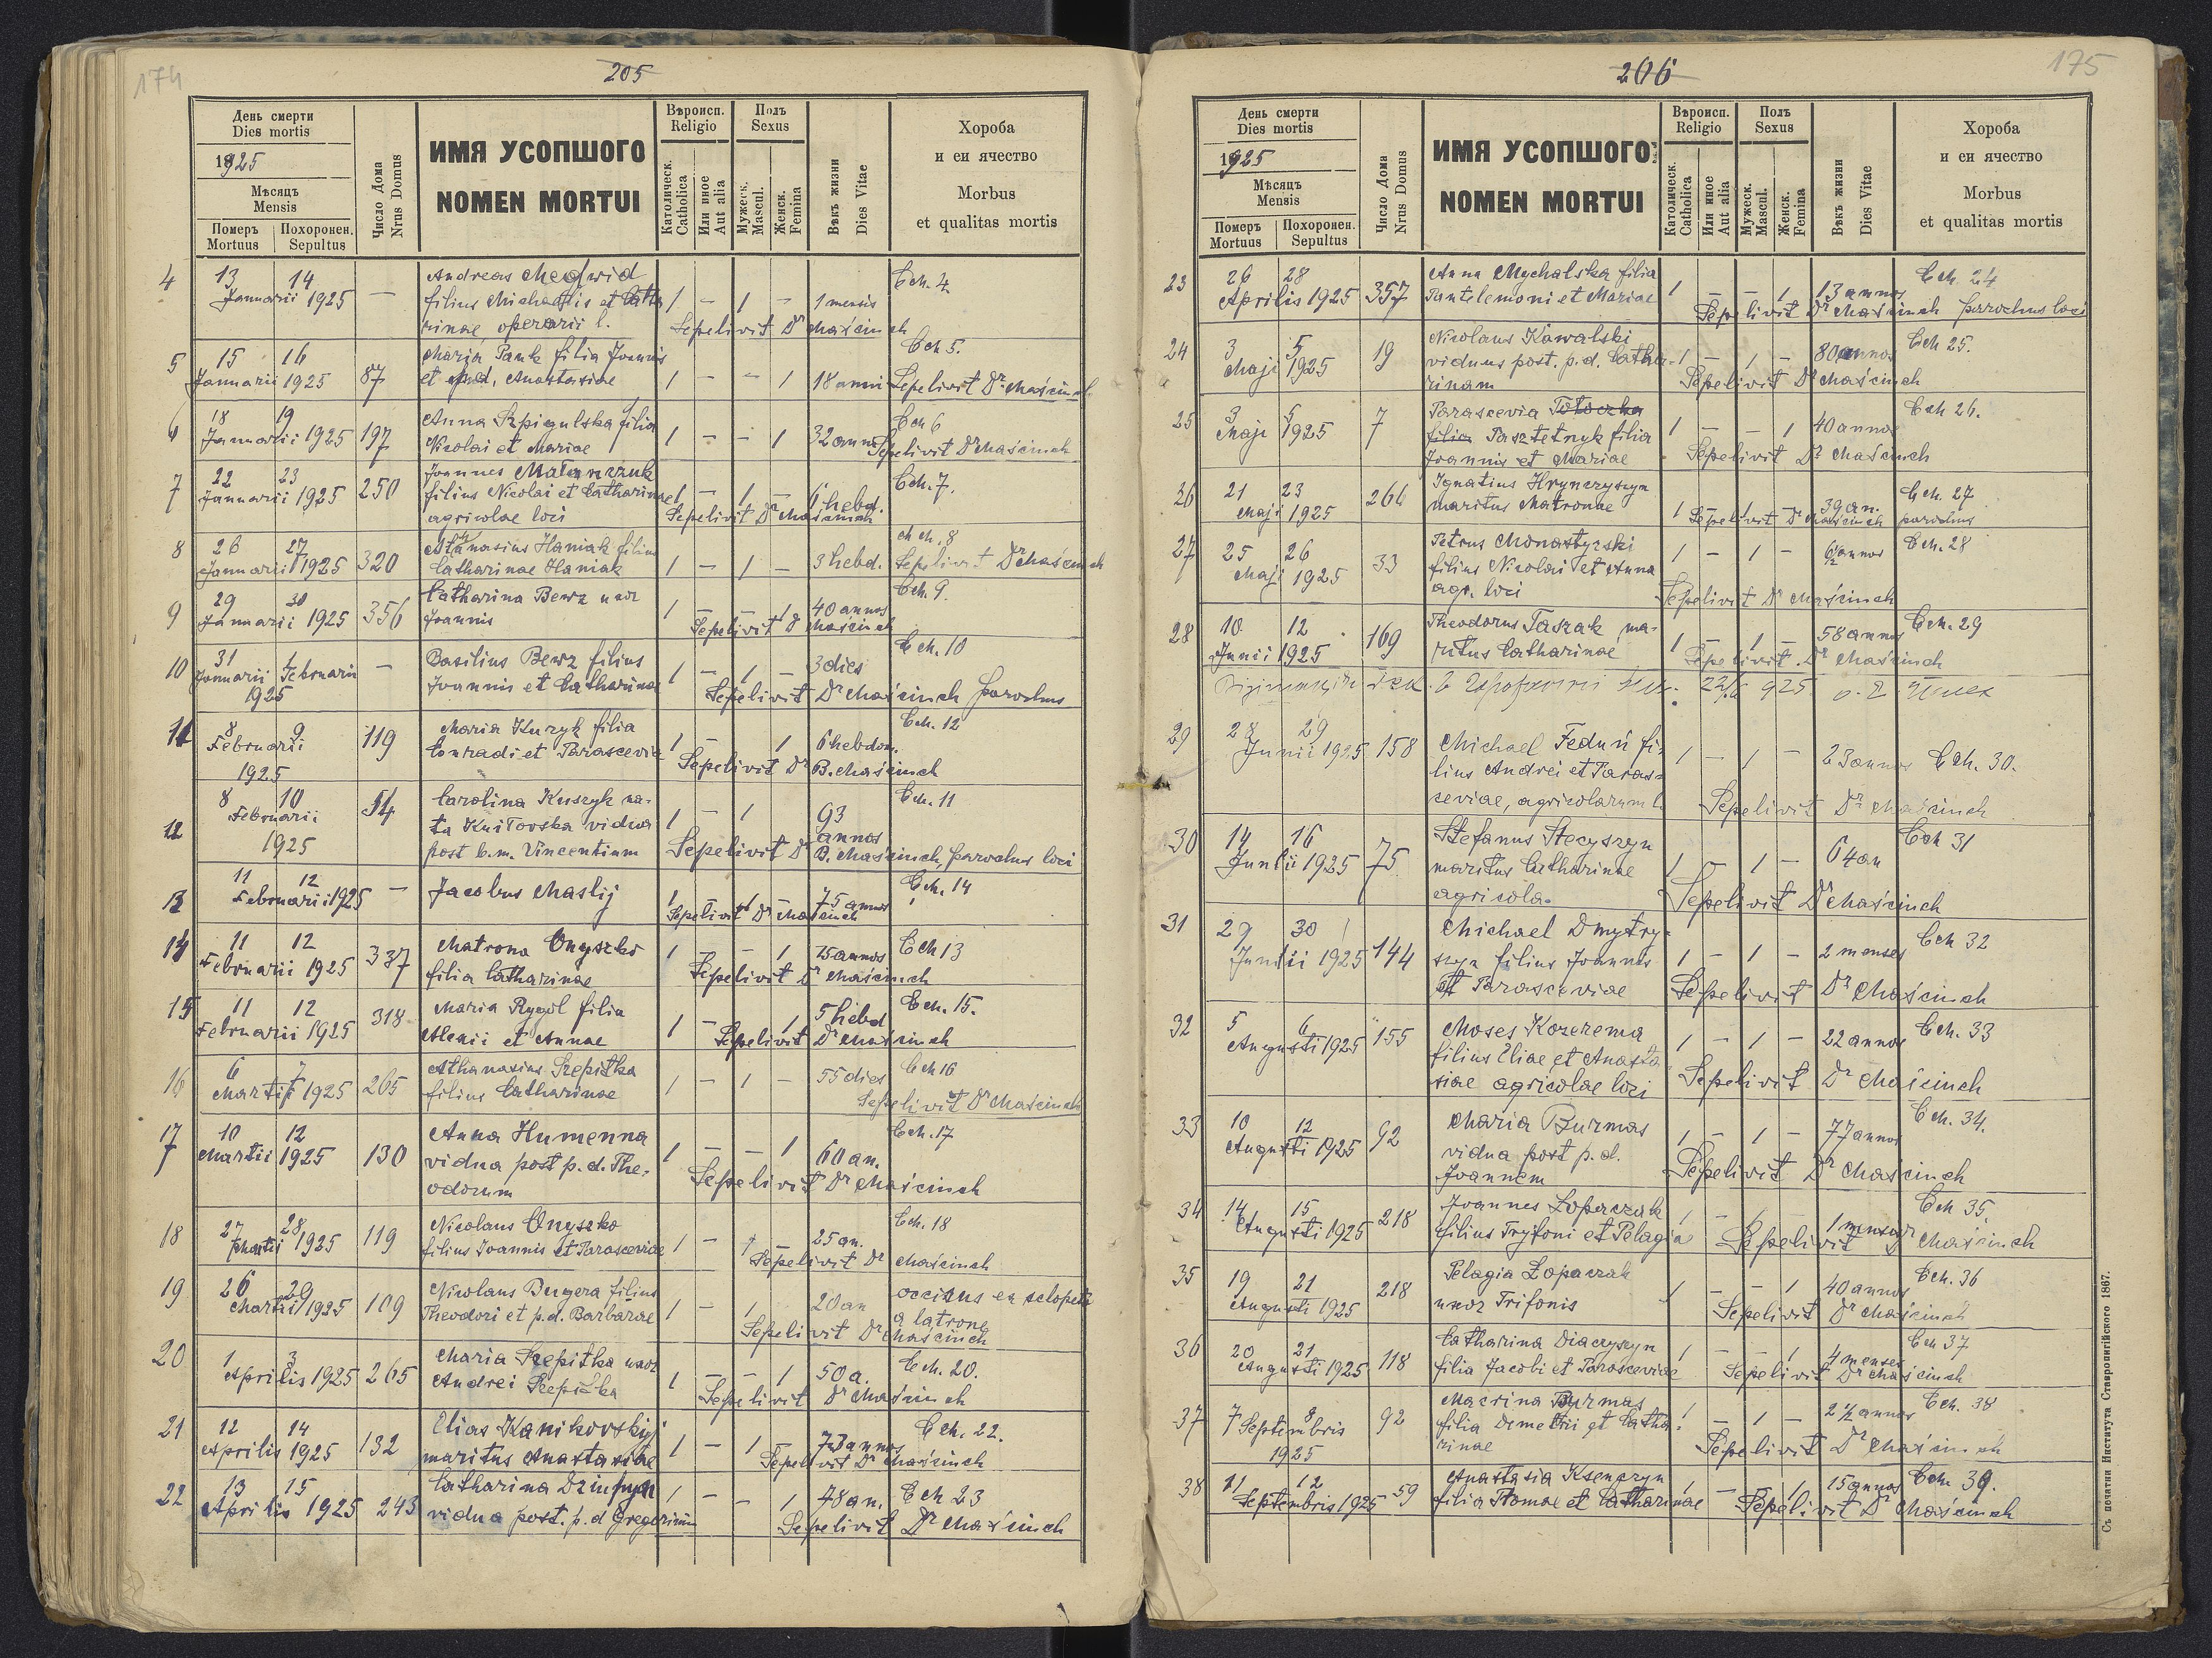 174
205
День смерти
Dies mortis
1925
Мѣсяцъ
Mensis
Померъ
Mortuus
Похоронен.
Sepultus
Число Дома
Nrus Domus
ИМЯ УСОПШОГО
NOMEN MORTUI
Вѣроисп.
Religio
Католическ.
Catholica
Или иное
Aut alia
Полъ
Sexus
Мужеск.
Mascul.
Женск.
Femina
Вѣкъ жизни
Dies Vitae
Хороба
и еи ячество
Morbus
et qualitas mortis
4 13 14 Januarii 1925 — Andreas Medwid
filius Michaelis et Catha
rinae operarii l. 1 – 1 – 1 mensis Ech. 4.
Sepelivit Dr Maścinch
5 15 16 Januarii 1925 87 Maria Pauk filia Joannis
et Anastasiae 1 – – 1 18 anni Ech 5.
Sepelivit Dr Maścinch
6 18 19 Januarii 1925 197 Anna Szpigulska filia
Nicolai et Mariae 1 – – 1 32 annos Ech 6
Sepelivit Dr Maścinch
7 22 23 Januarii 1925 250 Joannes
filius Nicolai et Catharinae
agricolae loci 1 – 1 – 6 hebd. Ech. 7.
Sepelivit Dr Maścinch
8 26 27 Januarii 1925 320 Athanasius Haniak filius
Catharinae Haniak 1 – 1 – 3 hebd. Ech. 8
Sepelivit Dr Maścinch
9 29 30 Januarii 1925 356 Catharina Bewz uxor
Joannis 1 – – 1 40 annos Ech. 9.
Sepelivit Dr Maścinch
10 31 Januarii 1 Februarii 1925 — Basilius Bewz filius
Joannis et Catharinae 1 – 1 – 3 dies Ech. 10
Sepelivit Dr Maścinch parochus
11 8 9 Februarii 1925 119 Maria Kuzyk filia
Conradi et Parascevia 1 – 1 6 hebdom. Ech. 12
Sepelivit Dr B. Maścinch
12 8 10 Februarii 1925 54 Carolina Kuszyk na-
ta vidua
post b.m. Vincentium 1 – 1 93 annos Ech. 11
Sepelivit Dr B. Maścinch, parochus loci
13 11 12 Februarii 1925 — Jacobus Maslij 1 – 1 – 75 annos Ech. 14
Sepelivit Dr Maścinch
14 11 12 Februarii 1925 337 Matrona Onyszko
filia Catharinae 1 – – 1 75 annos Ech 13
Sepelivit Dr Maścinch
15 11 12 Februarii 1925 318 Maria Rygol filia
Alexii et Annae 1 – – 1 5 hebd Ech. 15.
Sepelivit Dr Maścinch
16 6 7 Martii 1925 265 Athanasius Szepitka
filius Catharinae 1 – 1 – 55 dies Ech 16
Sepelivit Dr Maścinch
17 10 12 Martii 1925 130 Anna Humenna
vidua post p.d. The-
odorum 1 – – 1 60 an. Ech. 17
Sepelivit Dr Maścinch
18 27 28 Martii 1925 119 Nicolaus Onyszko
filius Joannis et Parasceviae 1 – 1 – 25 an. Ech. 18
Sepelivit Dr Maścinch
19 26 29 Martii 1925 109 Nicolaus Bugera filius
Theodori et p.d. Barbarae 1 – 1 20 an occisus ex sclopeto
a latrone
Sepelivit Dr Maścinch
20 1 3 Aprilis 1925 265 Maria Szepitka uxor
Andrei Szepitka 1 – – 1 50 a. Ech. 20.
Sepelivit Dr Maścinch
21 12 14 Aprilis 1925 132 Elias Kanikovskyj
maritus Anastasiae 1 – 1 73 annos Ech. 22.
Sepelivit Dr Maścinch
22 13 15 Aprilis 1925 243 Catharina
vidua post. p.d Gregorium 1 – – 1 78 an. Ech 23
Sepelivit Dr Maścinch
175
206
День смерти
Dies mortis
1925
Мѣсяцъ
Mensis
Померъ
Mortuus
Похоронен.
Sepultus
Число Дома
Nrus Domus
ИМЯ УСОПШОГО
NOMEN MORTUI
Вѣроисп.
Religio
Католическ.
Catholica
Или иное
Aut alia
Полъ
Sexus
Мужеск.
Mascul.
Женск.
Femina
Вѣкъ жизни
Dies Vitae
Хороба
и еи ячество
Morbus
et qualitas mortis
23 26 28 Aprilis 1925 357 Anna Mychalska filia
Pantelemoni et Mariae 1 – – 1 13 annos Ech. 24
Sepelivit Dr Maścinch parochus loci
24 3 5 Maji 1925 19 Nicolaus Kawalski
viduus post. p.d. Catha-
rinam 1 – 1 – 80 annos Ech 25.
Sepelivit Dr Maścinch
25 3 5 Maji 1925 7 Parascevia Totoczka
filia Pasztetnyk filia
Joannis et Mariae 1 – – 1 40 annos Ech 26.
Sepelivit Dr Maścinch
26 21 23 Maji 1925 266 Ignatius Hrynczyszyn
maritus Matronae 1 – 1 – 39 an. Ech. 27
Sepelivit Dr Maścinch parochus
27 25 26 Maji 1925 33 Petrus Monastyrski
filius Nicolai et Anna
agr. loci 1 – 1 – 6 1/2 annos Ech. 28
Sepelivit Dr Maścinch
28 10 12 Junii 1925 169 Theodorus Taszak ma-
ritus Catharinae 1 – 1 – 58 annos Ech. 29
Sepelivit Dr Maścinch
925
29 28 29 Junii 1925 158 Michael Feduń fi-
lius Andrei et Paras-
ceviae, agricolarum l. 1 – 1 – 23 annos Ech. 30.
Sepelivit Dr Maścinch
30 14 16 Julii 1925 75 Stefanus Stecyszyn
maritus Catharinae
agricola. 1 – 1 – 64 an Ech 31
Sepelivit Dr Maścinch
31 29 30 Julii 1925 144 Michael Dmytry-
szyn filius Joannis
et Parasceviae 1 – 1 – 2 menses Ech 32
Sepelivit Dr Maścinch
32 5 6 Augusti 1925 155 Moses Kozerema
filius Eliae et Anasta
siae agricolae loci 1 – 1 – 22 annos Ech. 33
Sepelivit Dr Maścinch
33 10 12 Augusti 1925 92 Maria Burmas
vidua post p.d.
Joannem 1 – 1 – 77 annos Ech. 34.
Sepelivit Dr Maścinch
34 14 15 Augusti 1925 218 Joannes Łopaczak
filius Tryfoni et Pelagiae 1 – 1 – 1 mensis Ech 35.
Sepelivit Dr Maścinch
35 19 21 Augusti 1925 218 Pelagia Łopaczak
uxor Trifonis 1 – – 1 40 annos Ech. 36
Sepelivit Dr Maścinch
36 20 21 Augusti 1925 118 Catharina Diaczyszyn
filia Jacobi et Parasceviae 1 – – 1 4 menses Ech 37
Sepelivit Dr Maścinch
37 7 8 Septembris 1925 92 Macrina Burmas
filia Demetrii et Catha-
rinae 1 – 1 – 2 1/2 annos Ech. 38
Sepelivit Dr Maścinch
38 11 12 Septembris 1925 59 Anastasia Ksenczyn
filia Thomae et Catharinae 1 – – 1 15 annos Ech. 39.
Sepelivit Dr Maścinch
Съ печатни Института Ставропигійского 1867.